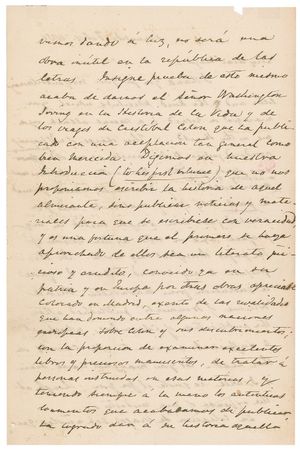 vamos dando á luz, no será una
obra inútil en la república de las
letras. Insigne prueba de esto mismo
acaba de darnos el señor Washington
Irving en la Historia de la Vida y de
los viages de Cristóbal Colon que ha publi-
cado con una aceptacion tan general como
bien merecida. Digimos en nuestra
Introduccion (to his first volume) que no nos
proponiamos escribir la historia de aquel
almirante, sino publicar noticias y mate-
riales para que se escribiese con veracidad,
y es una fortuna que el primero se haya
aprovechado de ellos sea un literato jui-
cioso y erudito, conocido ya en su
patria y en Europa por otras obras apreciables
Colocado en Madrid, exento de las rivalidades
que han dominado entre algunas naciones
europeas sobre Colon y sus descubrimientos;
con la proporcion de examinar excelentes
libros y preciosos manuscritos, de tratar á
personas instruidas en estas materias, y
teniendo siempre a la mano los autenticos
documentos que acababamos de publicar,
ha logrado dar á su historia aquella